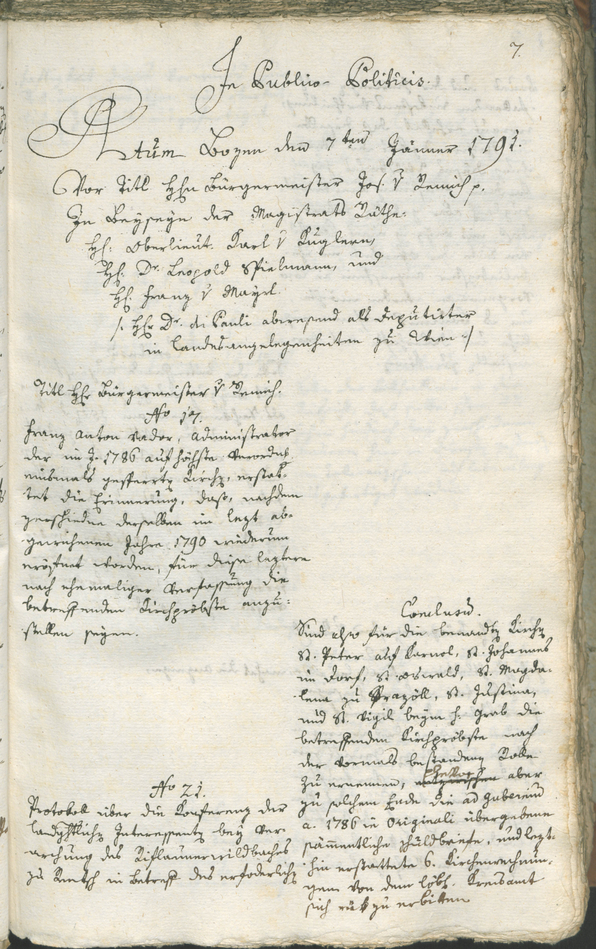 7.
In Publico-Politicis.
Actum Bozen den 7ten Jänner 1791.
Vor Titl Hhn Bürgermeister Jos. v Remich p.
In Beyseyn der Magistrats Räthe.
Hh: Oberlieut. Karl v Kuglern,
Hh: Dr. Leopold Spielmann, und
Hh: Franz v Mayrl.
/: Hhr Dr. di Pauli abwesend als Deputirter
in Landesangelegenheiten zu Wien :/
Titl Hhr Bürgermeister v Remich.
No 17.
Franz Anton Vador, Administrator
der im J. 1786 auf höchste Verordnung
einsmals gesperrten Kirchen, erstat-
tet die Erinnerung, daß, nachdem
verschiedene derselben im lezt ab-
gewichenen Jahre 1790 wiederum
eröfnet worden, für diese leztere
nach ehemaliger Verfassung die
betreffenden Kirchpröbste anzu-
stellen seyen.
Conclusum.
Sind also für die benandten Kirchen
St. Peter auf Karnol, St. Johannes
im Dorf, St. Oswald, St. Magda-
lena zu Prazöll, St. Justina,
und St. Vigil beym h. Grab die
betreffenden Kirchpröbste nach
der vormals bestandenen Rolle
zu ernennen, aber
zu solchem Ende die ad Gubernium
a. 1786 in Originali übergebene
sämmentliche Schuldbriefe, und lezt-
hin erstattete 6. Kirchenrechnun-
gen von dem löbl. Kreisamt
sich rück zu erbitten
No 21.
Protokoll über die Konferenz der
Interessenten bey Ver-
archung des Riflaunerwildbaches
zu Rentsch in Betreff des erforderlichen